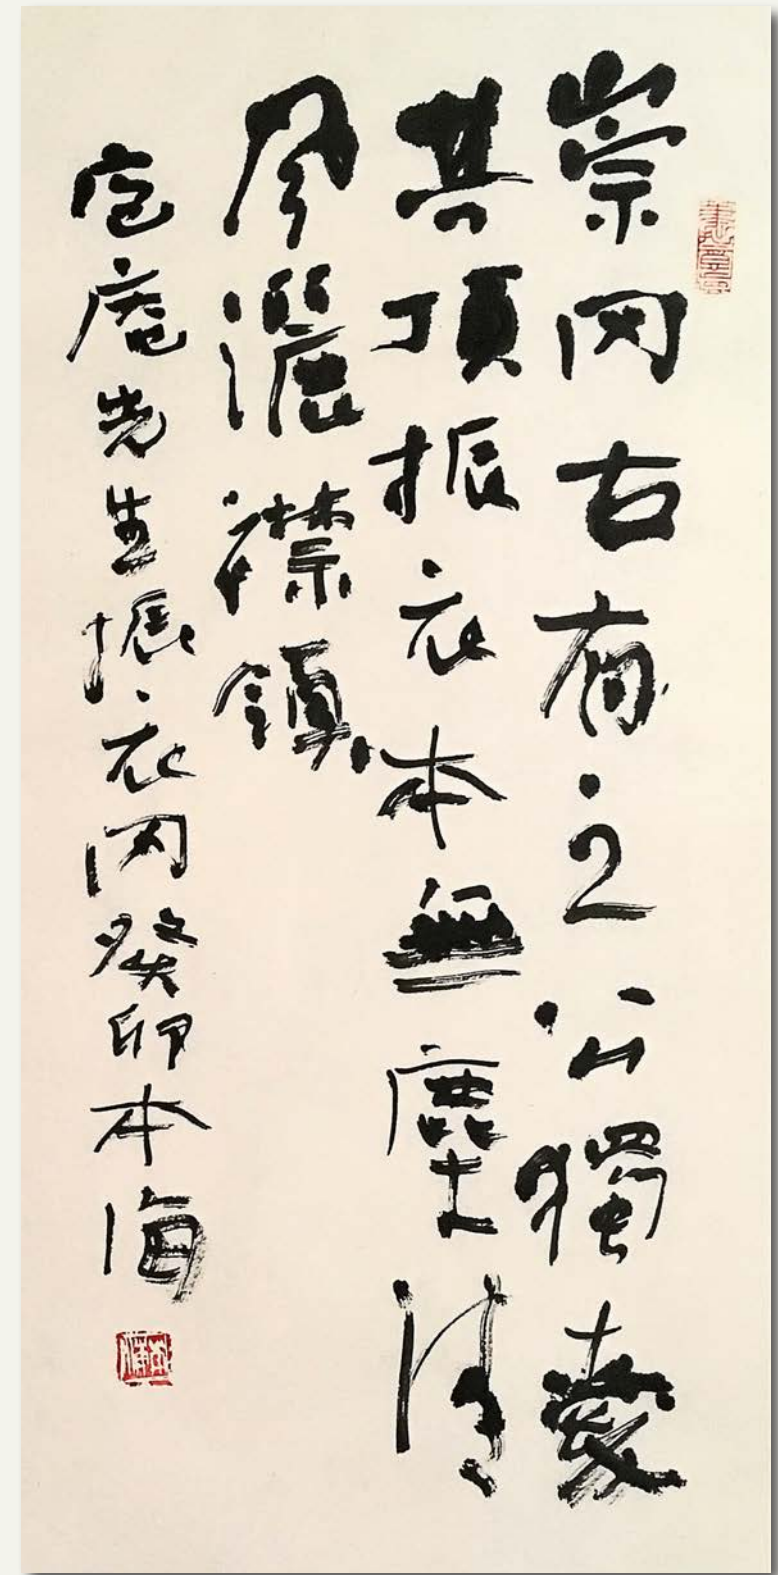 崇冈古有之公獨愛
其頂振衣本無塵清
風灑襟領
庖庵先生振衣冈癸卯本海